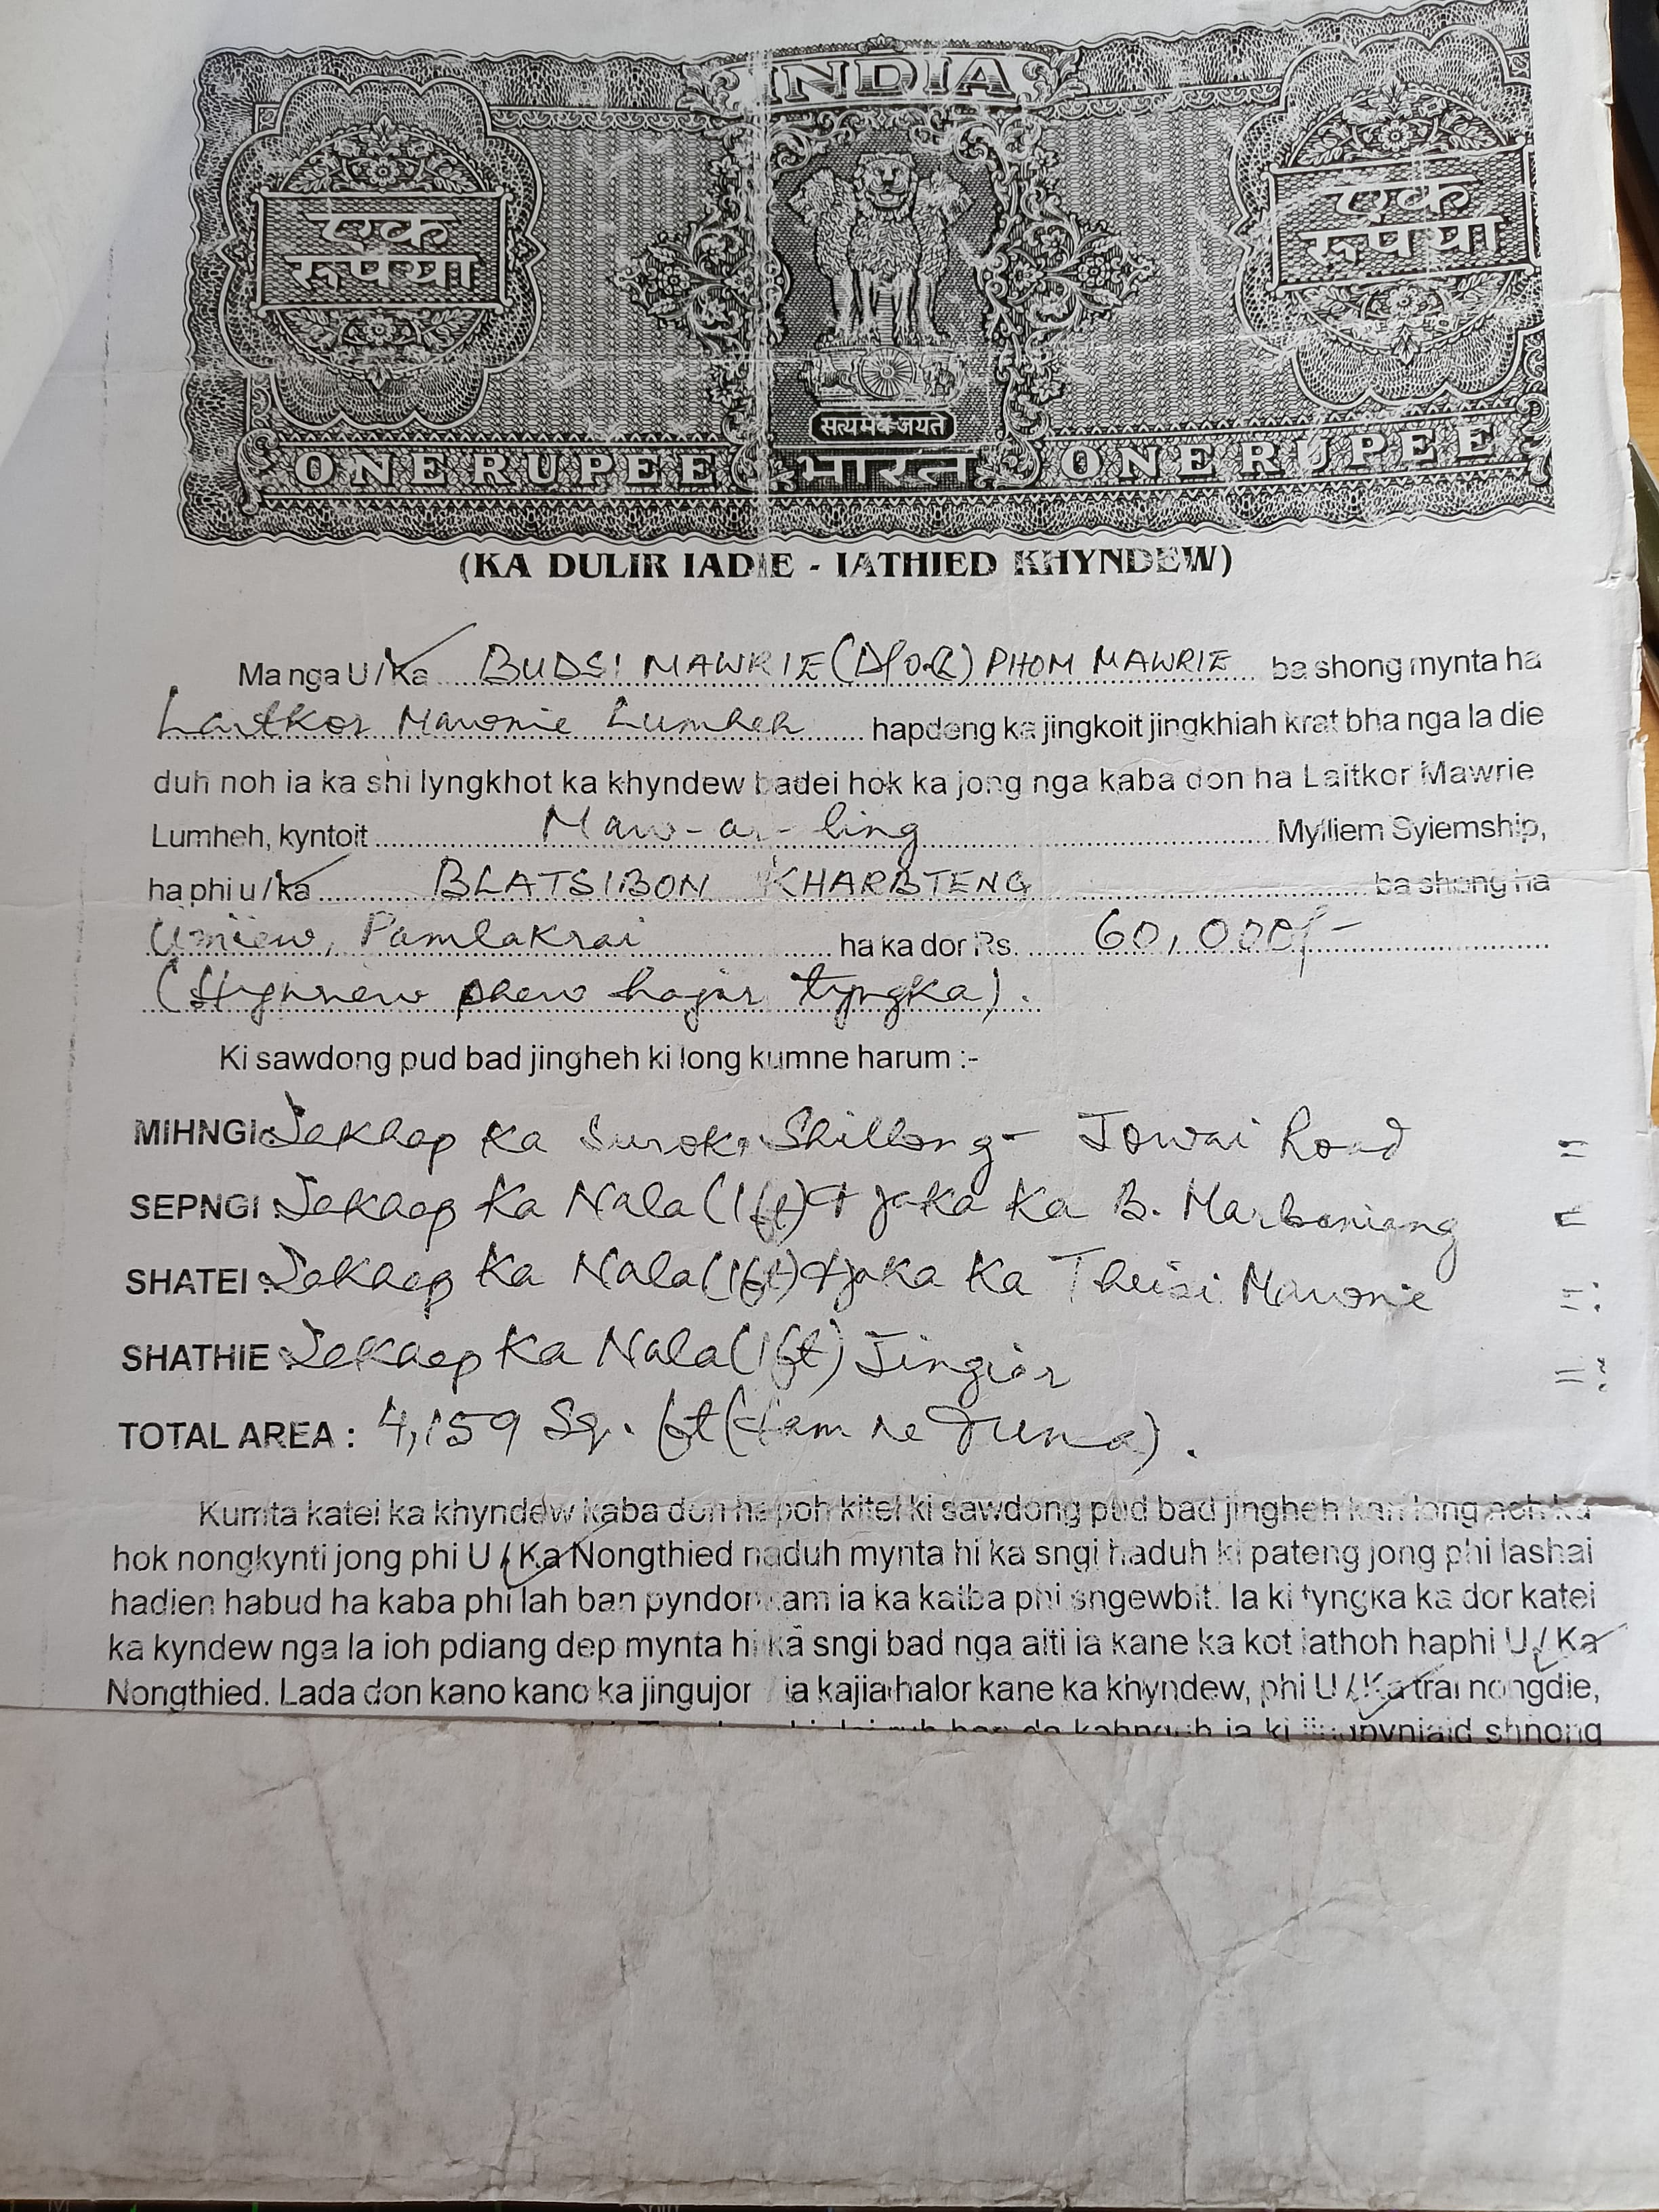 INDIA
एक
रूपया
एक
रूपया
सत्यमेव जयते
ONE RUPEE भारत ONE RUPEE
(KA DULIR IADIE - IATHIED KHYNDEW)
Ma nga U / Ka BUDSI MAWRIE (D/o.(L) PHOM MAWRIE ba shong mynta ha
Laitkor Mawrie Lumheh hapdeng ka jingkoit jingkhiah krat bha nga la die
duh noh ia ka shi lyngkhot ka khyndew badei hok ka jong nga kaba don ha Laitkor Mawrie
Lumheh, kyntoit Maw-ar-ling Mylliem Syiemship,
ha phi u / ka BLATSIBON KHARBTENG ba shong ha
Umiew, Pamlakrai ha ka dor Rs. 60,000/-
(Hynriew phew hajar tyngka).
Ki sawdong pud bad jingheh ki long kumne harum :-
MIHNGI: Ka Surok, Shillong - Jowai Road =
SEPNGI : Ka Nala (1ft) + jaka Ka B. Marbaniang =
SHATEI : Ka Nala (1ft) + jaka Ka Theisi Mawrie =
SHATHIE : Ka Nala (1ft) Jingiar =
TOTAL AREA : 4,159 Sq. ft
Kumta katei ka khyndew kaba don hapoh kitei ki sawdong pud bad jingheh kan long noh ka
hok nongkynti jong phi U / Ka Nongthied naduh mynta hi ka sngi haduh ki pateng jong phi lashai
hadien habud ha kaba phi lah ban pyndonkam ia ka katba phi sngewbit. Ia ki tyngka ka dor katei
ka kyndew nga la ioh pdiang dep mynta hi ka sngi bad nga aiti ia kane ka kot iathoh haphi U / Ka
Nongthied. Lada don kano kano ka jingujor / ia kajia halor kane ka khyndew, phi U / Ka trai nongdie,
ia ki jingpyniaid shnong